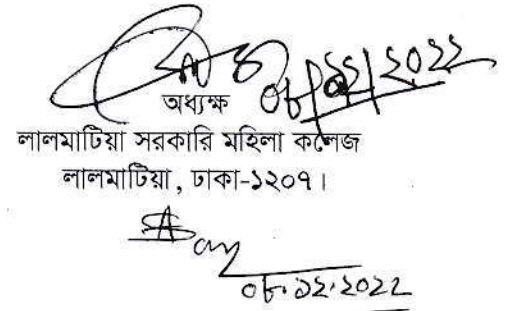 ০৮/১২/২০২২
অধ্যক্ষ
লালমাটিয়া সরকারি মহিলা কলেজ
লালমাটিয়া, ঢাকা-১২০৭।
০৮.১২.২০২২